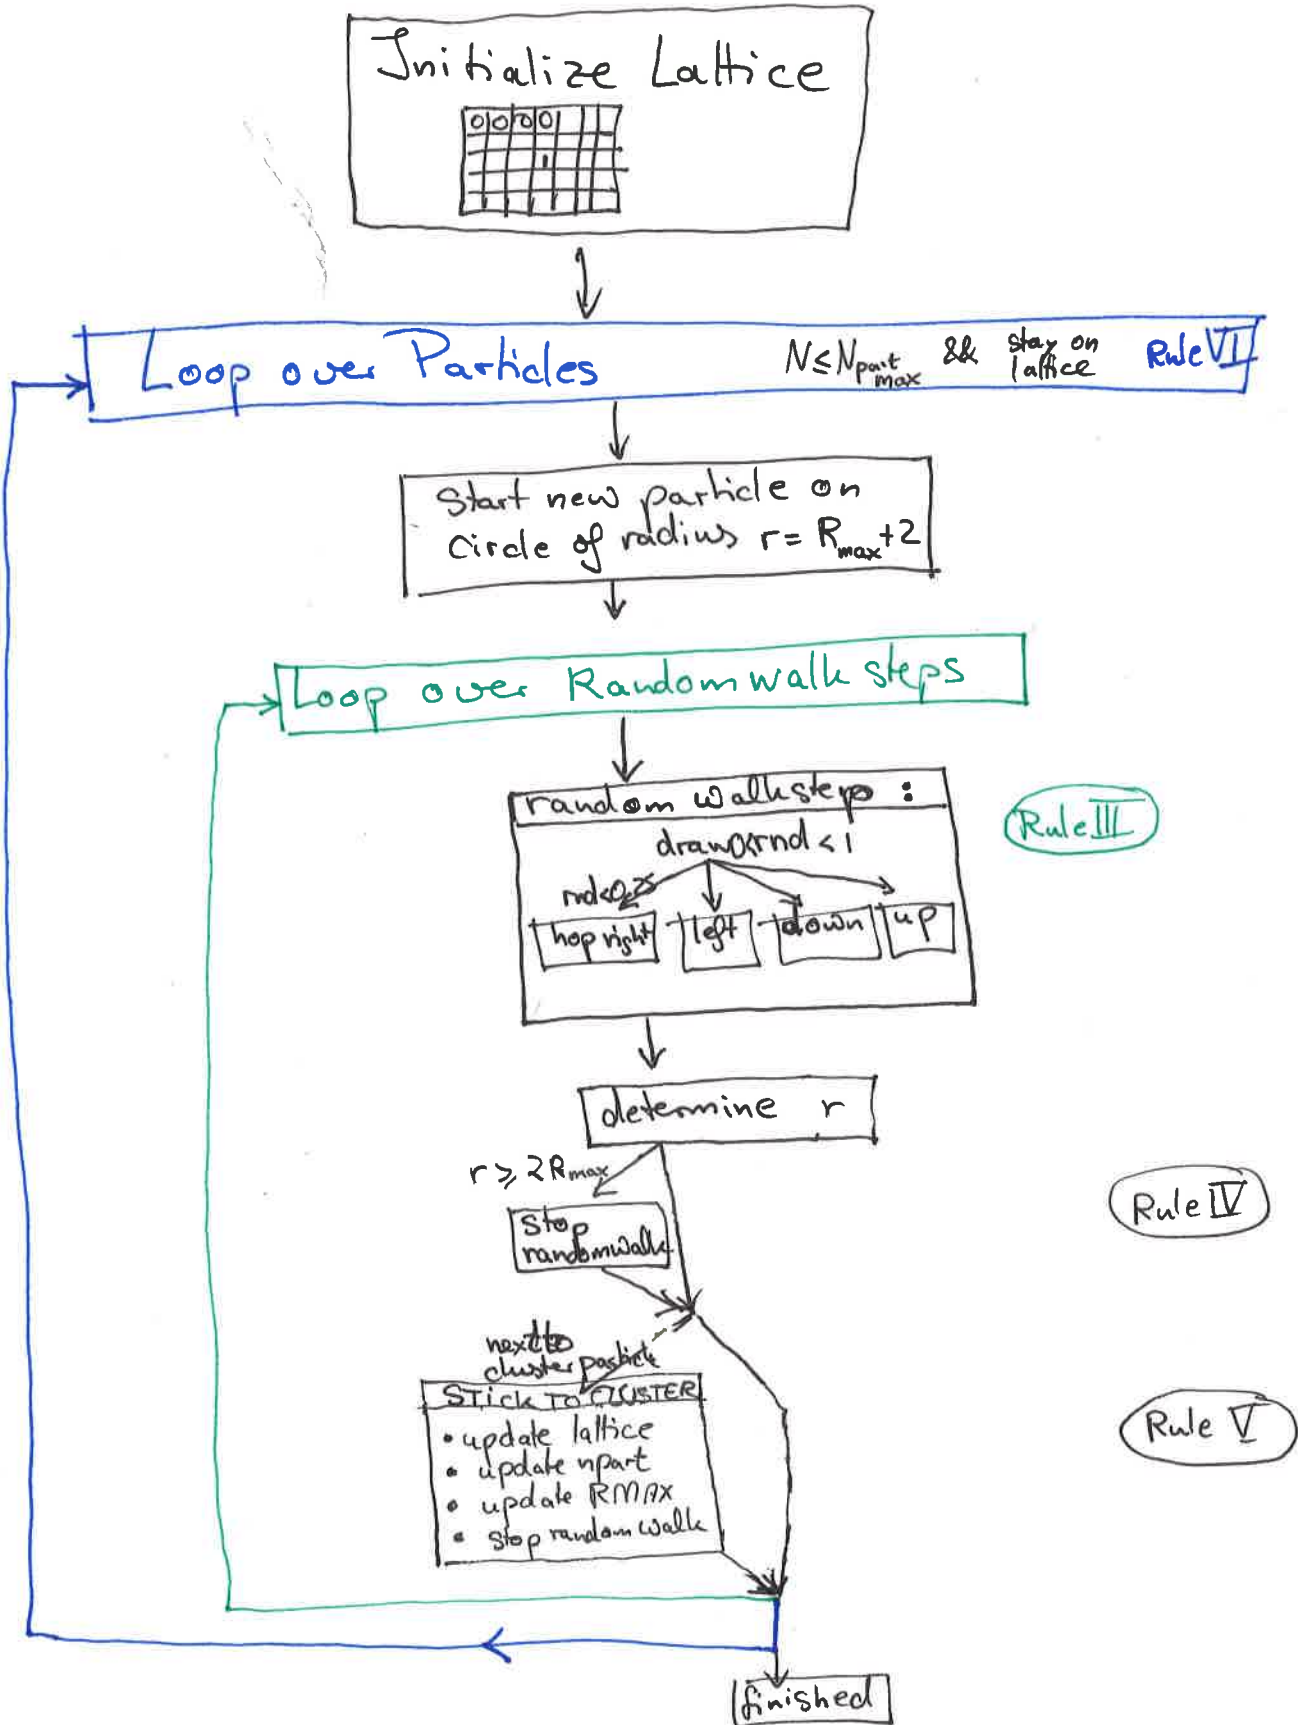 Initialize Lattice
0 0 0 0
1
Loop over Particles N ≤ Npart max && stay on lattice Rule VI
Start new particle on
circle of radius r = Rmax+2
Loop over Randomwalk steps
random walksteps :
Rule III
draw 0<rnd < 1
rnd<0,25
hop right left down up
determine r
r ≥ 2Rmax
Rule IV
Stop
randomwalk
next to
cluster particle
STICK TO CLUSTER
Rule V
• update lattice
• update npart
• update RMAX
• stop random walk
finished